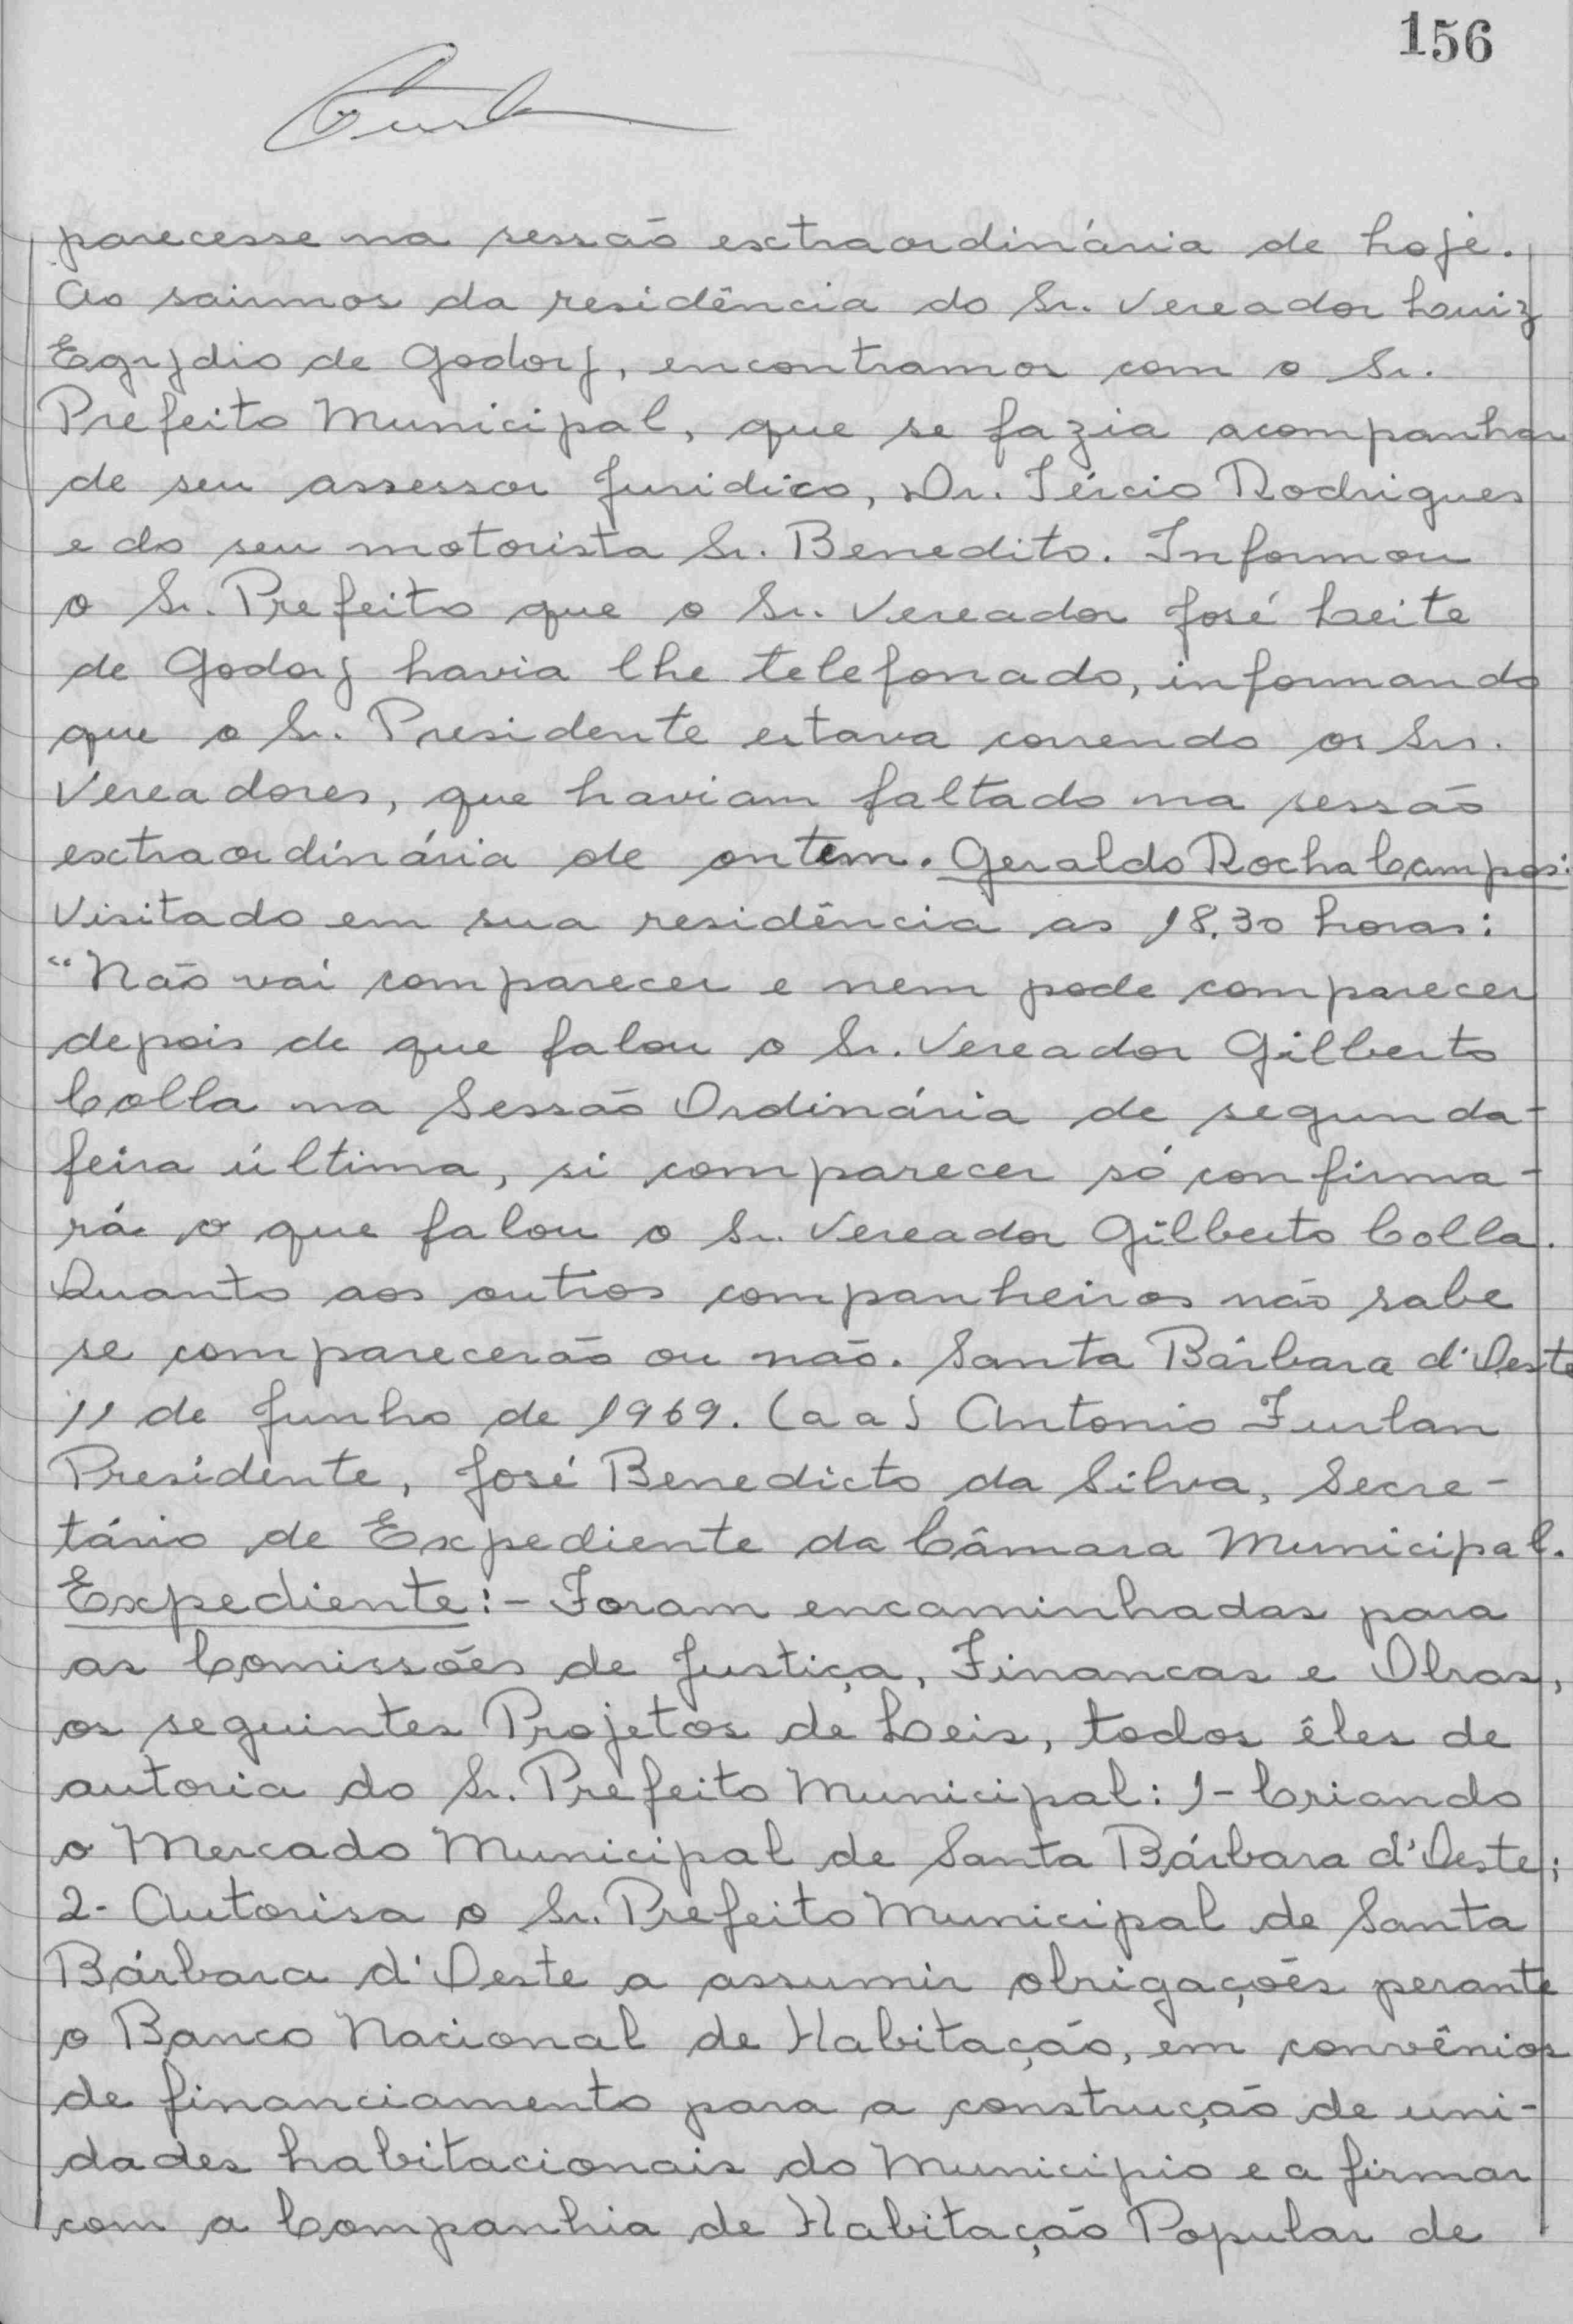 156
parecesse na sessão extraordinária de hoje.
Ao sairmos da residência do Sr. Vereador Luiz
Egydio de Godoy, encontramos com o Sr.
Prefeito Municipal, que se fazia acompanhar
de seu assessor Juridico, Dr. Tércio Rodrigues
e do seu motorista Sr. Benedito. Informou
o Sr. Prefeito que o Sr. Vereador José Leite
de Godoy havia lhe telefonado, informando
que o Sr. Presidente estava correndo os Srs.
Vereadores, que haviam faltado na sessão
extraordinária de ontem. Geraldo Rocha Campos:
Visitado em sua residência as 18,30 horas:
"Não vai comparecer e nem pode comparecer
depois de que falou o Sr. Vereador Gilberto
Colla na Sessão Ordinária de segunda-
feira última, si comparecer só confirma-
rá o que falou o Sr. Vereador Gilberto Colla.
Quanto aos outros companheiros não sabe
se comparecerão ou não. Santa Bárbara d'Oeste
11 de Junho de 1969. (a a) Antonio Furlan
Presidente, José Benedicto da Silva, Secre-
tário de Expediente da Câmara Municipal.
Expediente:- Foram encaminhadas para
as Comissões de Justiça, Financas e Obras,
os seguintes Projetos de Leis, todos êles de
autoria do Sr. Prefeito Municipal: 1- Criando
o Mercado Municipal de Santa Bárbara d'Oeste;
2- Autorisa o Sr. Prefeito Municipal de Santa
Bárbara d'Oeste a assumir obrigações perante
o Banco Nacional de Habitação, em convênios
de financiamento para a construção de uni-
dades habitacionais do Municipio e a firmar
com a Companhia de Habitação Popular de